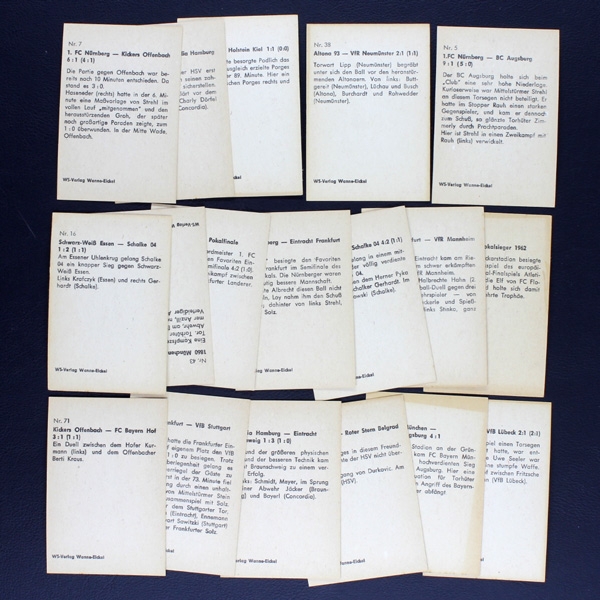 Nr. 7
1. FC Nürnberg — Kickers Offenbach
6 : 1 (4 : 1)
Die Partie gegen Offenbach war be-
reits nach 10 Minuten entschieden. Da
stand es 3 : 0.
Haseneder (rechts) hatte in der 6. Mi-
nute eine Maßvorlage von Strehl im
vollen Lauf „mitgenommen" und den
herausstürzenden Groh, der später
noch großartige Paraden zeigte, zum
1 : 0 überwunden. In der Mitte Wade,
Offenbach.
WS-Verlag Wanne-Eickel
Hamburg
der HSV erst
seinen
sicherstellen.
klärt vor dem
Charly Dörfel
Concordia).
Holstein Kiel 1:1 (0:0)
besorgte Podlich das
Ausgleich erzielte Porges
89. Minute. Hier ein
zwischen Porges rechts und
-Eickel
Nr. 38
Altona 93 — VfR Neumünster 2:1 (1:1)
Torwart Lipp (Neumünster) begräbt
unter sich den Ball vor den heranstür-
menden Altonaern. Von links: Butt-
gereit (Neumünster), Löchau und Busch
(Altona), Burchardt und Rohwedder
(Neumünster).
WS-Verlag Wanne-Eickel
Nr. 5
1. FC Nürnberg — BC Augsburg
9 : 1 (5 : 0)
Der BC Augsburg holte sich beim
„Club" eine sehr hohe Niederlage.
Kurioserweise war Mittelstürmer Strehl
an diesem Torsegen nicht beteiligt. Er
hatte im Stopper Rauh einen starken
Gegenspieler, und kam er dennoch
zum Schuß, so glänzte Torhüter Zim-
merly durch Prachtparaden.
Hier ist Strehl in einem Zweikampf mit
Rauh (links) verwickelt.
WS-Verlag Wanne-Eickel
Nr. 16
Schwarz-Weiß Essen — Schalke 04
1 : 2 (1 : 1)
Am Essener Uhlenkrug gelang Schalke
04 ein knapper Sieg gegen Schwarz-
Weiß Essen.
Links Krafczyk (Essen) und rechts Ger-
hardt (Schalke).
WS-Verlag Wanne-Eickel
WS-Verlag
Nr. 43
1860 München
Eine Kampfszene
Tor. Torhüter
Abwehr, um
mer Anzik,
Verteidiger
Pokalfinale
Nordmeister 1. FC
Favoriten Ein-
halbfinale 4:2 (1:0).
Zweikampf zwischen
Frankfurter Landerer.
Eintracht Frankfurt
besiegte den Favoriten
Frankfurt im Semifinale des
Pokals. Die Nürnberger waren
bessere Mannschaft.
Albrecht diesen Ball nicht
Loy nahm ihm den Schuß
dahinter von links Strehl,
Solz.
Schalke 04 4:2 (1:1)
gelang in einem mit-
der völlig verdiente
04.
dem Horner Pyka
Schalker Gerhardt. Im
Kowalski (Schalke).
VfR Mannheim
Eintracht kam am Rie-
schwer erkämpften
VfR Mannheim.
Halbrechte Hahn (2.
Ball-Duell gegen drei
spieler — von
und Spieß-
links Stinka, ganz
Pokalsieger 1962
Neckarstadion besiegte
spiel des europäi-
Final-Finalspiels Atleti-
die Elf von FC Flo-
und holte sich damit
ehrte Trophäe.
Nr. 71
Kickers Offenbach — FC Bayern Hof
3 : 1 (1 : 1)
Ein Duell zwischen dem Hofer Kur-
mann (links) und dem Offenbacher
Berti Kraus.
WS-Verlag Wanne-Eickel
VfB Stuttgart
hatte die Frankfurter Ein-
eigenem Platz den VfB
1 : 0 zu besiegen. Trotz
Überlegenheit gelang es
der Gäste zu
erst in der 73. Minute fiel
durch einen unhalt-
Mittelstürmer Stein
Zusammenspiel mit Solz.
dem Stuttgarter Tor.
(Eintracht), Ennemann
wart Sawitzki (Stuttgart)
Frankfurter Solz.
Hamburg — Eintracht
1 : 3 (1 : 0)
und der größeren physischen
und der besseren Technik kam
Braunschweig zu einem ver-
Erfolg.
links: Schmidt, Meyer, im Sprung
einer Abwehr Jäcker (Braun-
und Bayerl (Concordia).
Wanne-Eickel
Roter Stern Belgrad
in diesem Freund-
konnte der HSV nicht
gang von Durkovic. Am
(HSV).
Wanne-Eickel
München —
Augsburg 4 : 1
Stadion an der Grün-
kam FC Bayern Mün-
hochverdienten Sieg
Augsburg. Hier eine
Situation vor dem Tor
Angriff des Bayern-
er abfängt.
VfB Lübeck 2:1 (2:1)
spiel einen Torsegen
hatte, war ent-
Uwe Seeler war
eine stumpfe Waffe.
zwischen Fritzsche
(VfB Lübeck).
Wanne-Eickel